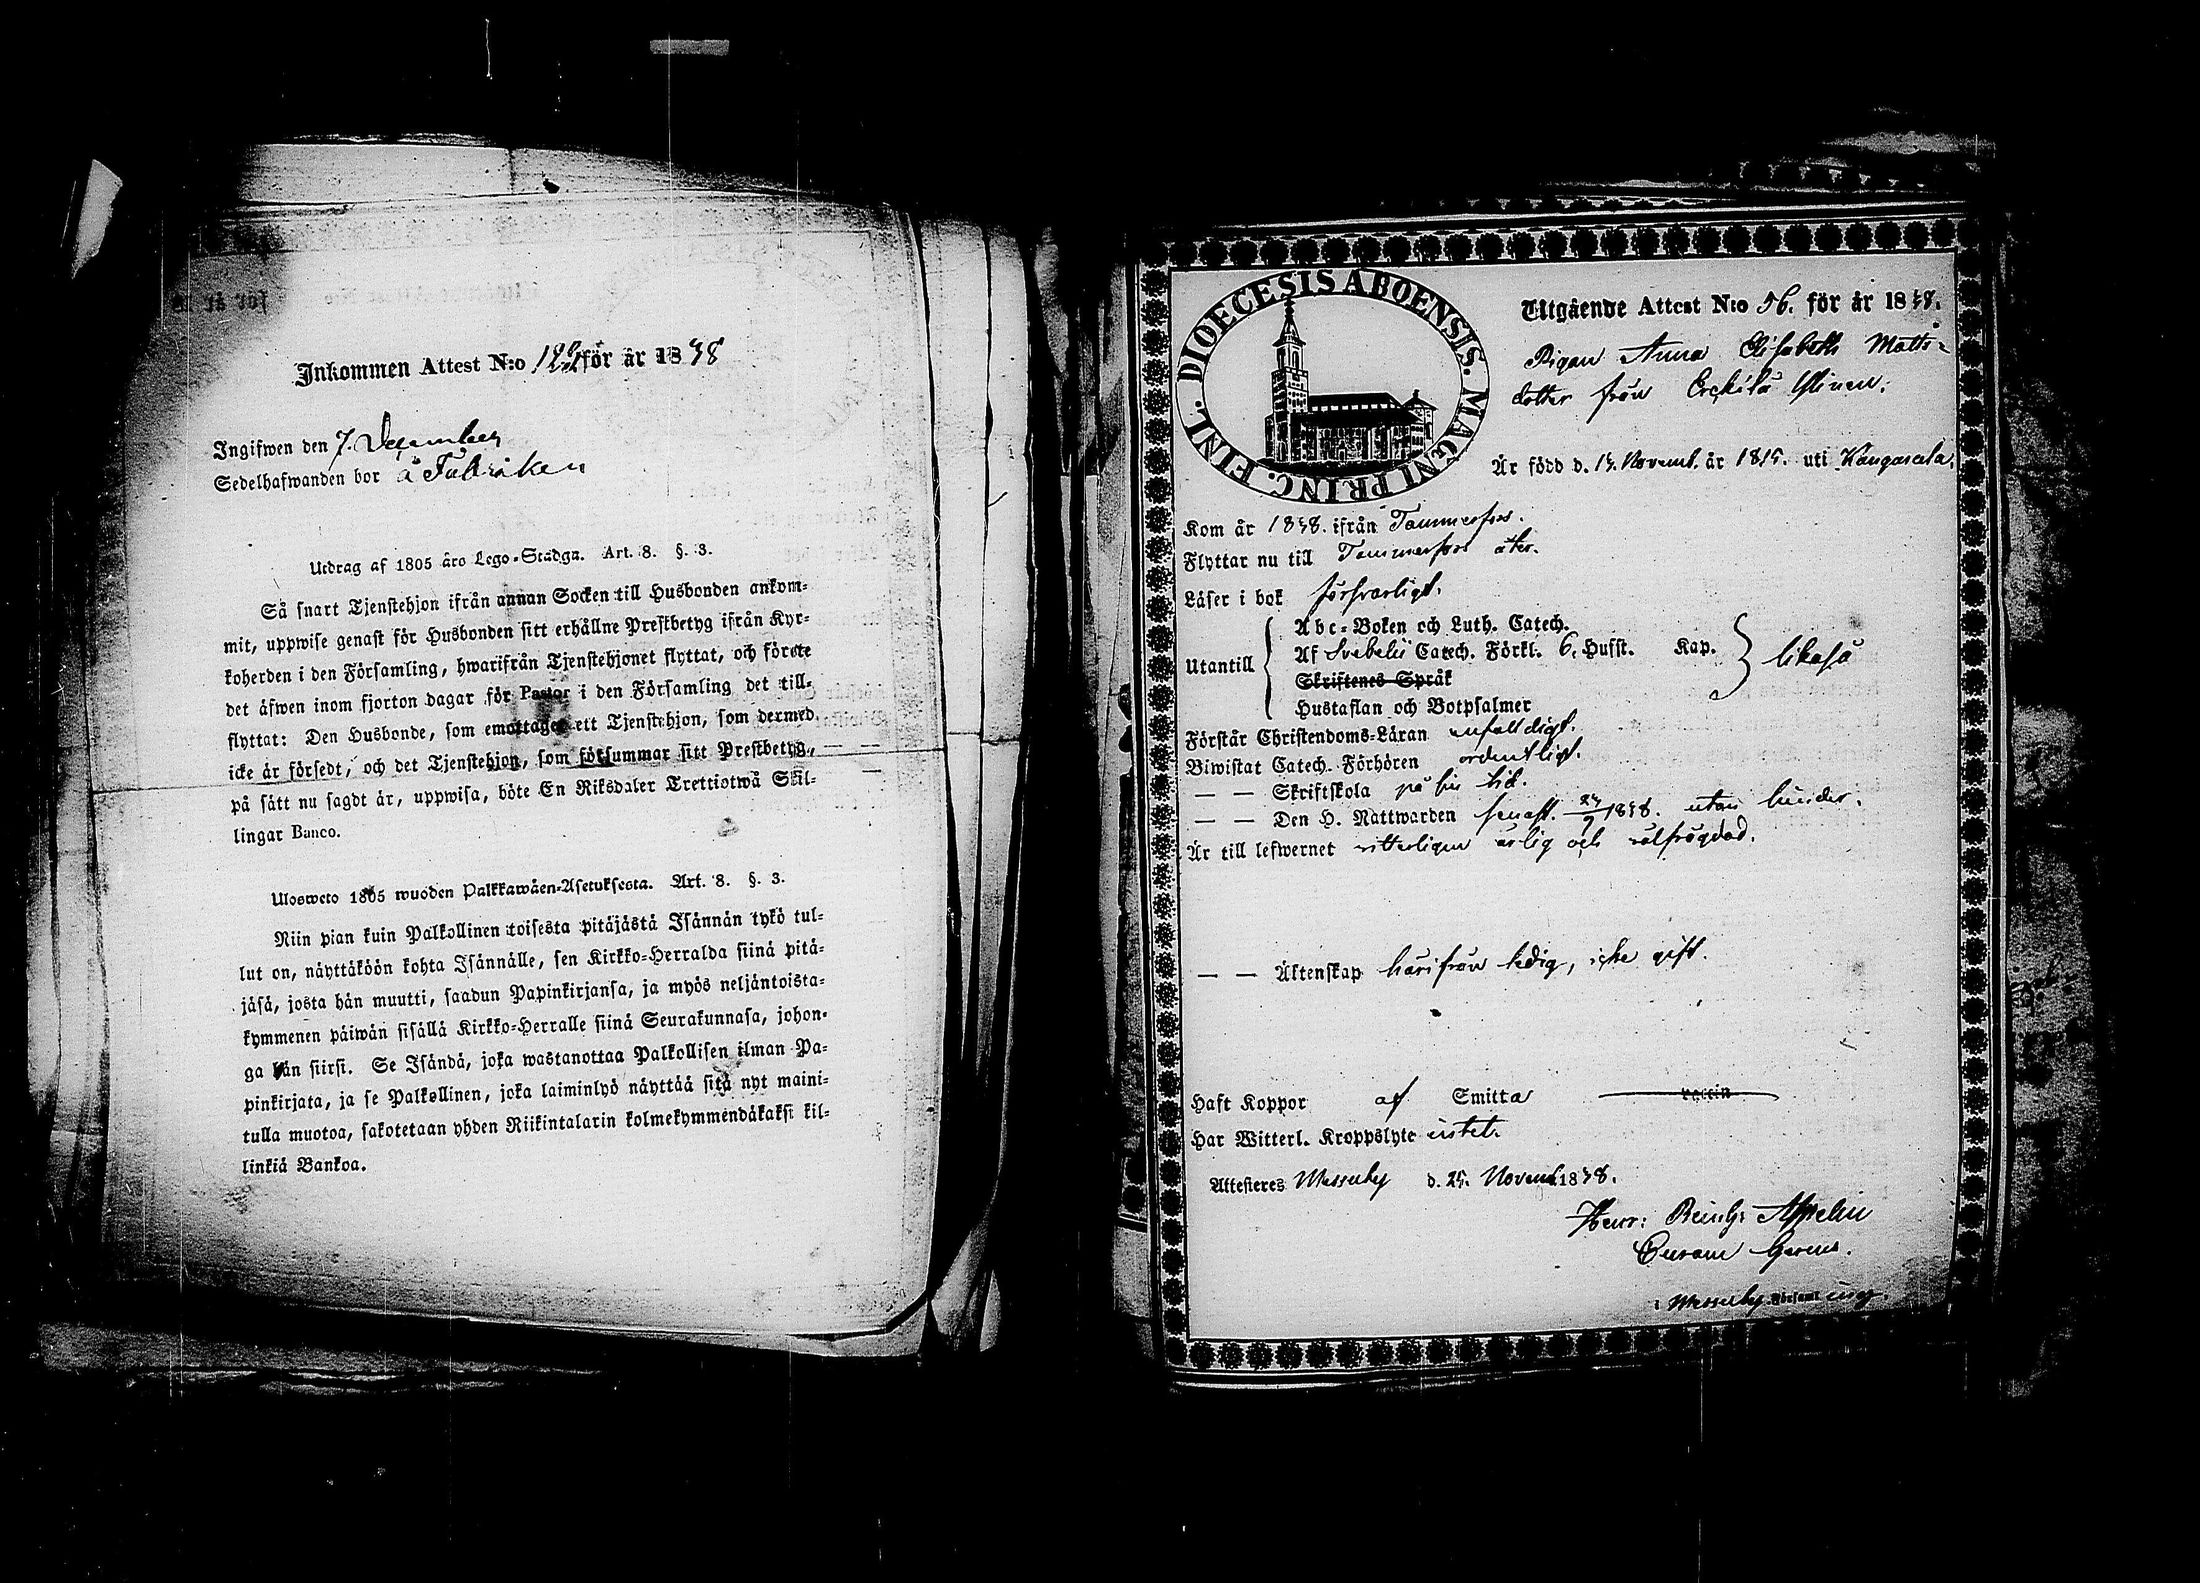 Inkommen Attest N:o 122 för år 1838
Ingifwen den 7. December
Sedelhafwanden bor å Fabriken
Utdrag af 1805 års Lego-Stadga. Art. 8. §. 3.
Så snart Tjenstehjon ifrån annan Socken till Husbonden ankom-
mit, uppwise genast för Husbonden sitt erhållne Prestbetyg ifrån Kyr-
koherden i den Församling, hwarifrån Tjenstehjonet flyttat, och förete
det äfwen inom fjorton dagar för Pastor i den Församling det till-
flyttat: Den Husbonde, som emottager ett Tjenstehjon, som dermed
icke är försedt, och det Tjenstehjon, som försummar sitt Prestbetyg,
på sätt nu sagdt är, uppwisa, böte En Riksdaler Trettiotwå Skil-
lingar Banco.
Ulosweto 1805 wuoden Palkkawäen-Asetuksesta. Art. 8. §. 3.
Niin pian kuin Palkollinen toisesta pitäjästä Isännän tykö tul-
lut on, näyttäköön kohta Isännälle, sen Kirkko-Herralda siinä pitä-
jäsä, josta hän muutti, saadun Papinkirjansa, ja myös neljäntoista-
kymmenen päiwän sisällä Kirkko-Herralle siinä Seurakunnasa, johon-
ga hän siirsi. Se Isändä, joka wastanottaa Palkollisen ilman Pa-
pinkirjata, ja se Palkollinen, joka laiminlyö näyttää sitä nyt maini-
tulla muotoa, sakotetaan yhden Riikintalarin kolmekymmendäkaksi kil-
linkiä Bankoa.
DIOECESIS ABOENSIS. MAGNI PRINC. FINL.
Utgående Attest N:o 56. för år 1838.
Pigan Anna Elisabeth Matts-
dotter från Erckilä
Är född d. 14. Novemb. år 1815. uti Kangasala.
Kom år 1838. ifrån Tammerfors.
Flyttar nu till Tammerfors åter.
Läser i bok försvarligt.
Utantill
Abc-Boken och Luth. Catech.
Af Svebelii Catech. Förkl. 6. Hufst. Kap. likaså
Skriftenes Språk
Hustaflan och Botpsalmer
Förstår Christendoms-Läran enfaldigt.
Biwistat Catech. Förhören ordentligt.
— — Skriftskola på sin tid.
— — Den H. Nattwarden senast. 24/9 1838. utan hinder.
Är till lefwernet witterligen ärlig och välfrägdad.
— — Äktenskap härifrån ledig, icke gift.
Haft Koppor af Smitta vaccin
Har Witterl. Kroppslyte intet.
Attesteres Messuby d. 25. Novemb. 1838.
Henr: Reinh: Aspelin
Curam Gerens.
i Messuby Församling.